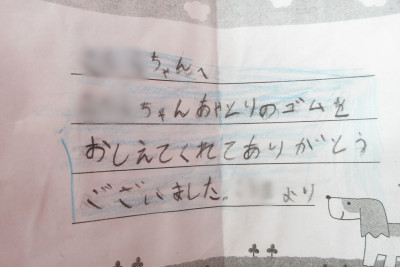 ちゃんへ
ちゃんあやとりのゴムを
おしえてくれてありがとう
ございました。 より